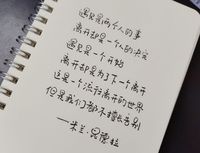 遇见是两个人的事
离开却是一个人的决定
遇见是一个开始
离开却是为了下一个离开
这是一个流行离开的世界
但是我们都不擅长告别
——米兰·昆德拉